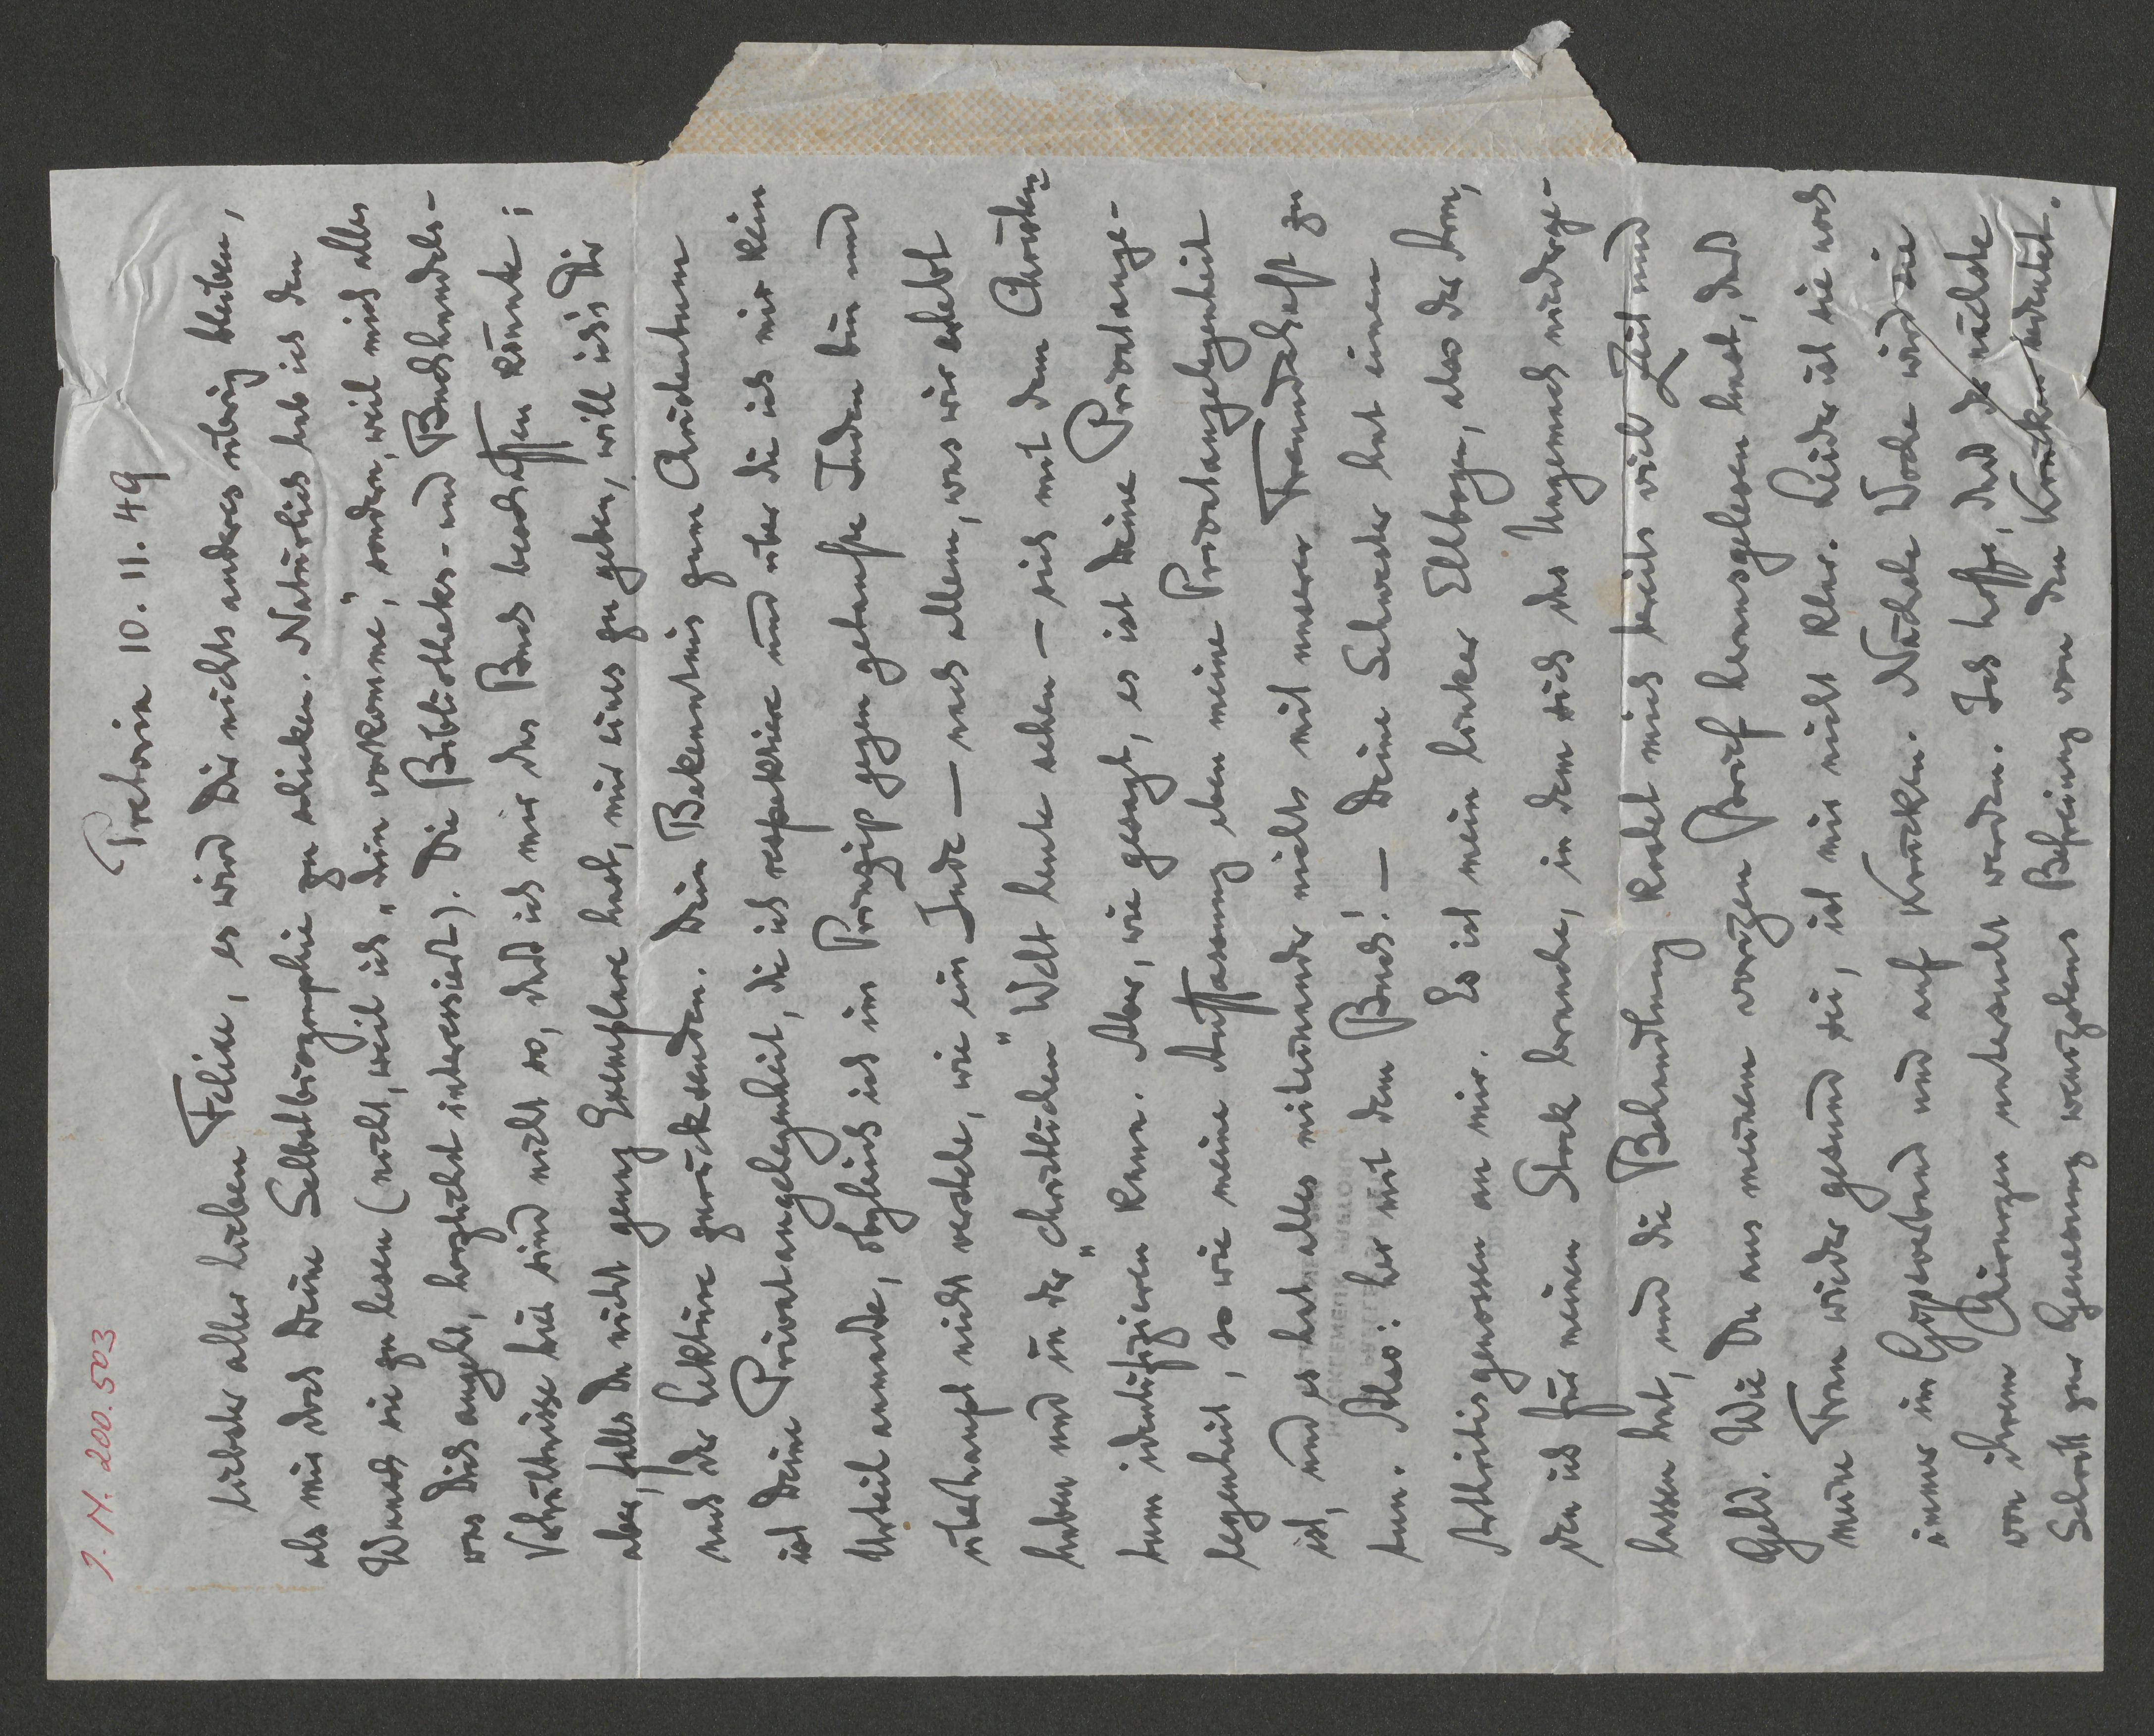 J. N. 200.503
Pretoria 10. 11. 49
Liebster aller lieben Felixe, es wird Dir nichts anderes übrig bleiben,
als mir doch Deine Selbstbiographie zu schicken. Natürlich hab ich den
Wunsch sie zu lesen (nicht, weil ich „drin vorkomme", sondern, weil mich alles
was Dich angeht, herzlichst interessiert). Die Bibliotheks- und Buchhandels-
Verhältnisse hier sind nicht so, daß ich mir das Buch beschaffen könnte;
aber, falls Du nicht genug Exemplare hast, mir eines zu geben, will ich's Dir
nach der Lektüre zurücksenden. Dein Bekenntnis zum Christentum
ist Deine Privatangelegenheit, die ich respektiere und über die ich mir kein
Urteil anmaße, obgleich ich im Prinzip gegen getaufte Juden bin und
überhaupt nicht verstehe, wie ein Jude — nach allem, was wir erlebt
haben und in der „christlichen" Welt heute sehen — sich mit dem Christen-
tum identifizieren kann. Aber, wie gesagt, es ist Deine Privatange-
legenheit, so wie meine Auffassung eben meine Privatangelegenheit
ist, und es hat alles miteinander nichts mit unserer Freundschaft zu
tun. Also: her mit dem Buch! — Deine Schwester hat einen
Arthritisgenossen an mir. Es ist mein linker Ellbogen, also der Arm,
den ich für meinen Stock brauche, in dem sich das Ungemach niederge-
lassen hat, und die Behandlung kostet mich bereits viel Zeit und
Geld. Wie Du aus meinem vorigen Brief herausgelesen hast, daß
meine Frau wieder gesund sei, ist mir nicht klar. Leider ist sie noch
immer im Gipsverband und auf Krücken. Nächste Woche wird sie
von ihrem Chirurgen untersucht werden. Ich hoffe, daß der nächste
Schritt zur Genesung wenigstens Befreiung von den Krücken bedeutet.